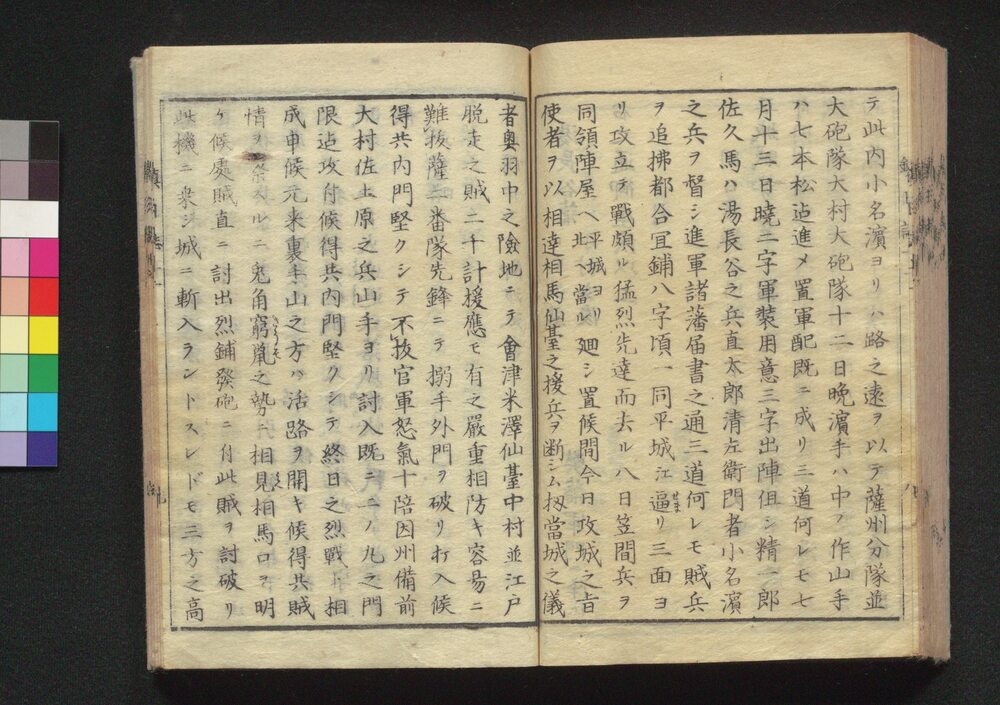 テ此内小名濱ヨリハ路之遠ヲ以テ薩州分隊並
大砲隊大村大砲隊十二日晩濱手ハ中ノ作山手
ハ七本松迠進メ置軍配既ニ成リ三道何レモ七
月十三日曉二字軍装用意三字出陣但シ精一郎
佐久馬ハ湯長谷之兵直太郎清左衛門者小名濱
之兵ヲ督シ進軍諸藩届書之通三道何レモ賊兵
ヲ追拂都合冝鋪八字頃一同平城江逼リ三面ヨ
リ攻立テ戰頗ル猛烈先達而去ル八日笠間兵ヲ
同領陣屋ヘ平城ヨリ北ヘ當ル廻シ置候間今日攻城之旨
使者ヲ以相達相馬仙臺之援兵ヲ断シム扨當城之儀
者奥羽中之險地ニテ會津米澤仙臺中村並江戸
脱走之賊二千計援應モ有之嚴重相防キ容昜ニ
難抜薩二番隊先鋒ニテ搦手外門ヲ破リ打入候
得共内門堅クシテ不抜官軍怒氣十陪因州備前
大村佐土原之兵山手ヨリ討入既ニ二ノ丸之門
限迠攻付候得共内門堅クシテ終日之烈戰ト相
成申候元来裏手山之方ハ活路ヲ開キ候得共賊
情ヲ察スルニ兎角窮鼠之勢ニ相見相馬口ヲ明
ケ候處賊直ニ討出烈鋪發砲ニ付此賊ヲ討破リ
此機ニ乗シ城ニ斬入ラントスレドモ三方之高